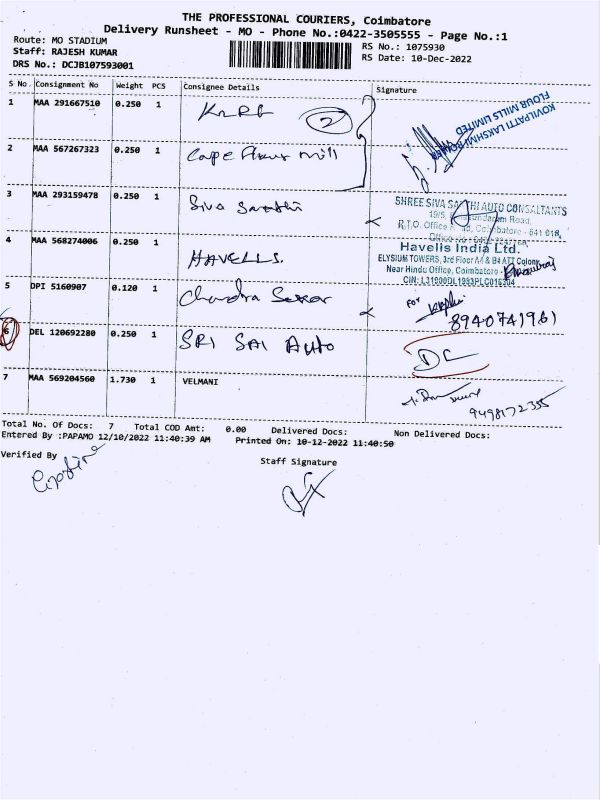 THE PROFESSIONAL COURIERS, Coimbatore
Delivery Runsheet - MO - Phone No.:0422-3505555 - Page No.:1
Route: MO STADIUM
Staff: RAJESH KUMAR
DRS No.: DCJB107593001
RS No.: 1075930
RS Date: 10-Dec-2022
S No. Consignment No Weight PCS Consignee Details Signature
1 MAA 291667510 0.250 1 2
KOVILPATTI LAKSHMI ROLLER
FLOUR MILLS LIMITED
2 MAA 567267323 0.250 1 mill
3 MAA 293159478 0.250 1 Siva Sarathi
SHREE SIVA SARTHI AUTO CONSALTANTS
19/5, Road,
R.T.O. Office Coimbatore - 641 018,
4 MAA 568274006 0.250 1 HAVELLS.
Havells India Ltd.
ELYSIUM TOWERS, 3rd Floor A4 & B4 ATT Colony
Near Hindu Office, Coimbatore -
CIN: L31900DL1983PLC016304
5 DPI 5160907 0.120 1 Chandra Sekar
For
8940741961
6 DEL 120692280 0.250 1 SRI SAI AUTO DL
7 MAA 569204560 1.730 1 VELMANI
9498172355
Total No. Of Docs: 7 Total COD Amt: 0.00 Delivered Docs: Non Delivered Docs:
Entered By :PAPAMO 12/10/2022 11:40:39 AM Printed On: 10-12-2022 11:40:50
Verified By
Staff Signature